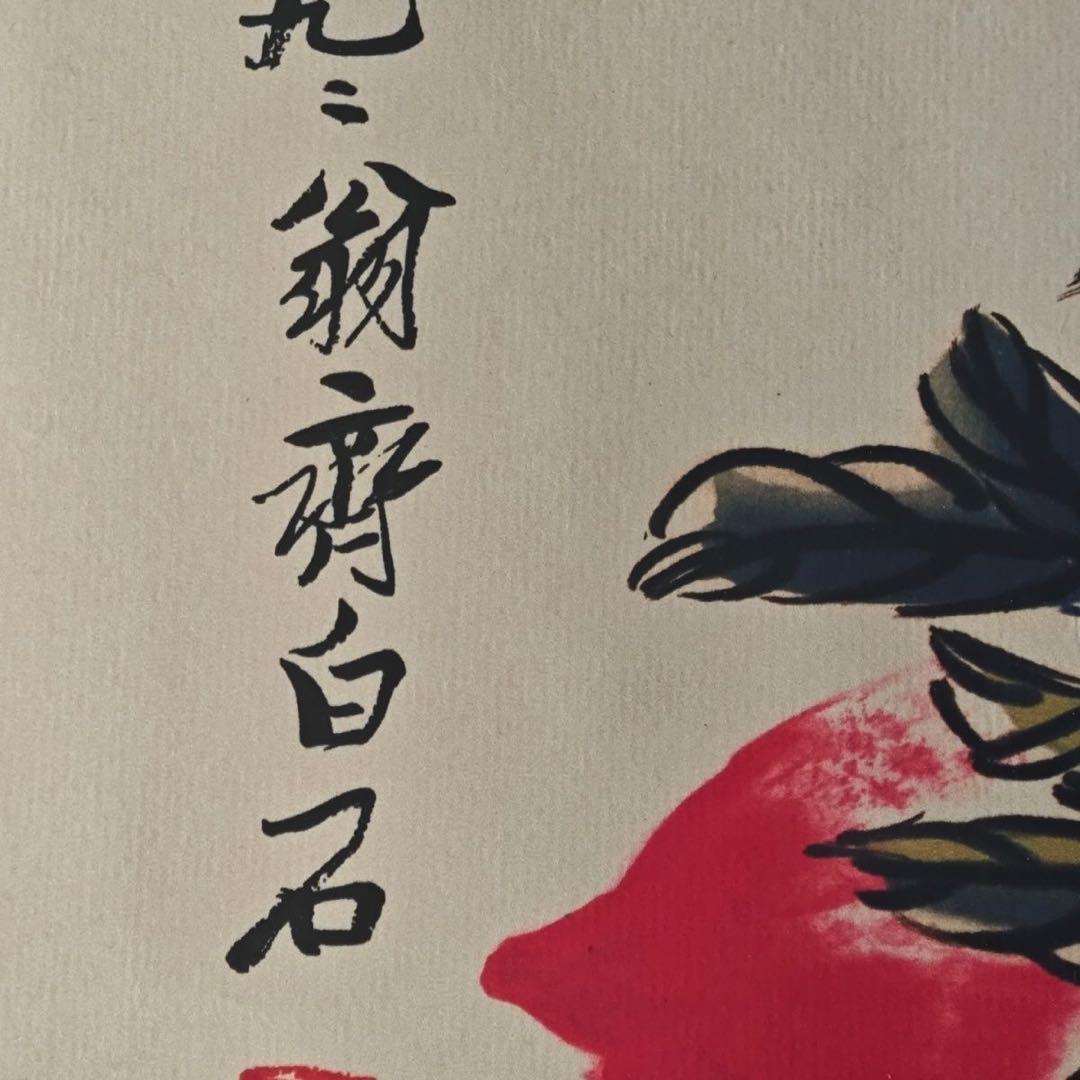 九二翁齊白石